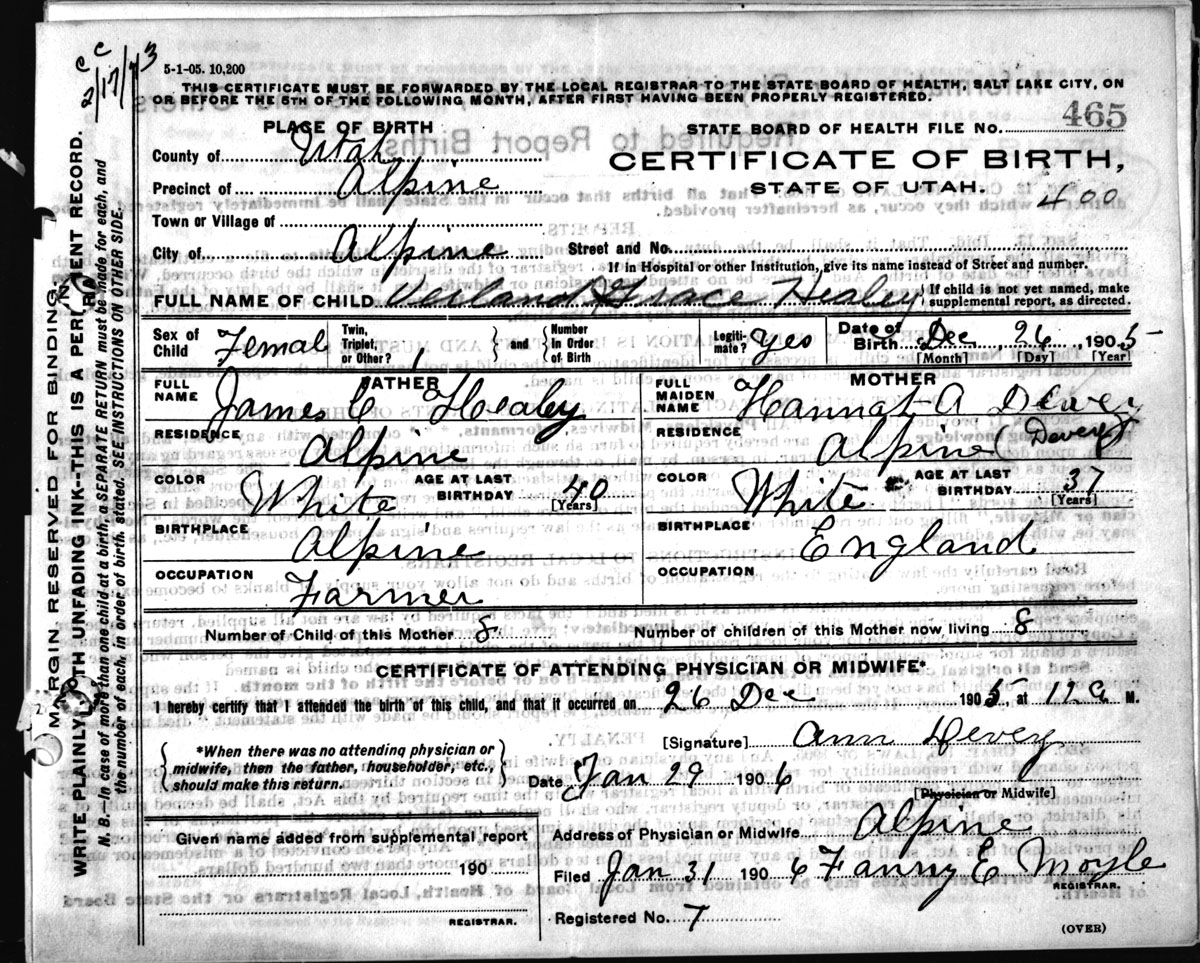 c c
2/17/73
5-1-05. 10,200
THIS CERTIFICATE MUST BE FORWARDED BY THE LOCAL REGISTRAR TO THE STATE BOARD OF HEALTH, SALT LAKE CITY, ON
OR BEFORE THE 5TH OF THE FOLLOWING MONTH, AFTER FIRST HAVING BEEN PROPERLY REGISTERED.
PLACE OF BIRTH
STATE BOARD OF HEALTH FILE NO. 465
County of Utah
CERTIFICATE OF BIRTH,
Precinct of Alpine
STATE OF UTAH.
400
Town or Village of
City of Alpine Street and No.
If in Hospital or other Institution, give its name instead of Street and number.
FULL NAME OF CHILD Grace Healey { If child is not yet named, make supplemental report, as directed.
Sex of Child Femal Twin, Triplet, or Other? 1 { and } Number in Order of Birth Legitimate? Yes Date of Birth Dec 26 1905
[Month] [Day] [Year]
FATHER
MOTHER
FULL NAME James C Healey
FULL MAIDEN NAME Hannah A Devey
RESIDENCE Alpine
RESIDENCE Alpine (Devey)
COLOR White AGE AT LAST BIRTHDAY 40 [Years]
COLOR White AGE AT LAST BIRTHDAY 37 [Years]
BIRTHPLACE Alpine
BIRTHPLACE England
OCCUPATION Farmer
OCCUPATION
Number of Child of this Mother 8 Number of children of this Mother now living 8
CERTIFICATE OF ATTENDING PHYSICIAN OR MIDWIFE*
I hereby certify that I attended the birth of this child, and that it occurred on 26 Dec 1905 at 12 a M.
*When there was no attending physician or
midwife, then the father, householder, etc.,
should make this return.
[Signature] Ann Devey
Date Jan 29 1906
[Physician or Midwife]
Given name added from supplemental report
190
REGISTRAR.
Address of Physician or Midwife Alpine
Filed Jan 31 1906 Fanny E Moyle
REGISTRAR.
Registered No. 7
(OVER)
MARGIN RESERVED FOR BINDING.
WRITE PLAINLY WITH UNFADING INK—THIS IS A PERMANENT RECORD.
N. B.—In case of more than one child at a birth, a SEPARATE RETURN must be made for each, and
the number of each, in order of birth, stated. SEE INSTRUCTIONS ON OTHER SIDE.